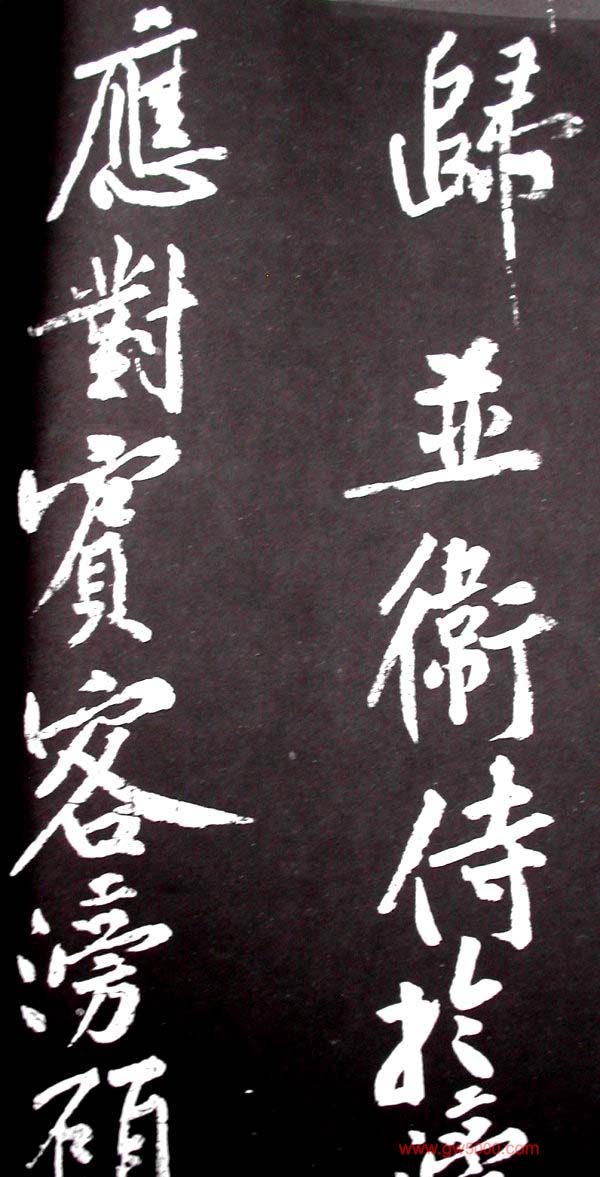 歸並衛侍於滂
應對賓客滂顧
www.gw5000.com